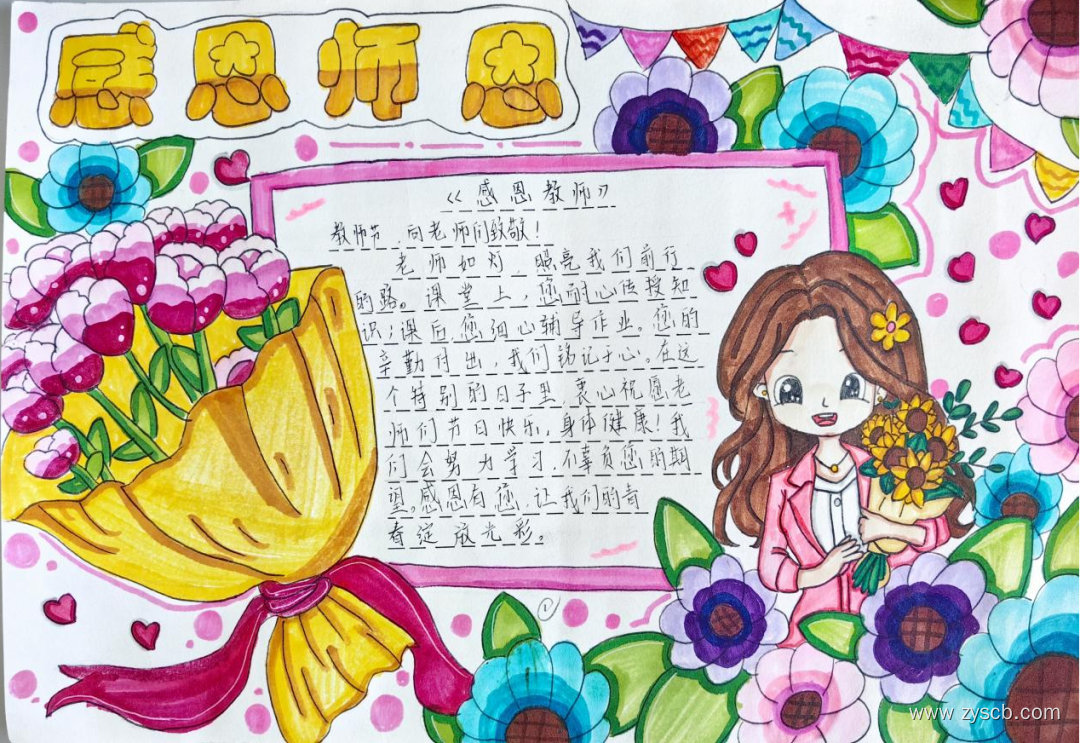 感恩师恩
《感恩教师》
教师节，向老师们致敬！
老师如灯，照亮我们前行
的路。课堂上，您耐心传授知
识；课后，您细心辅导作业。您的
辛勤付出，我们铭记于心。在这
个特别的日子里，衷心祝愿老
师们节日快乐，身体健康！我
们会努力学习，不辜负您的期
望。感恩有您，让我们的青
春绽放光彩。
1
www.zyscb.com